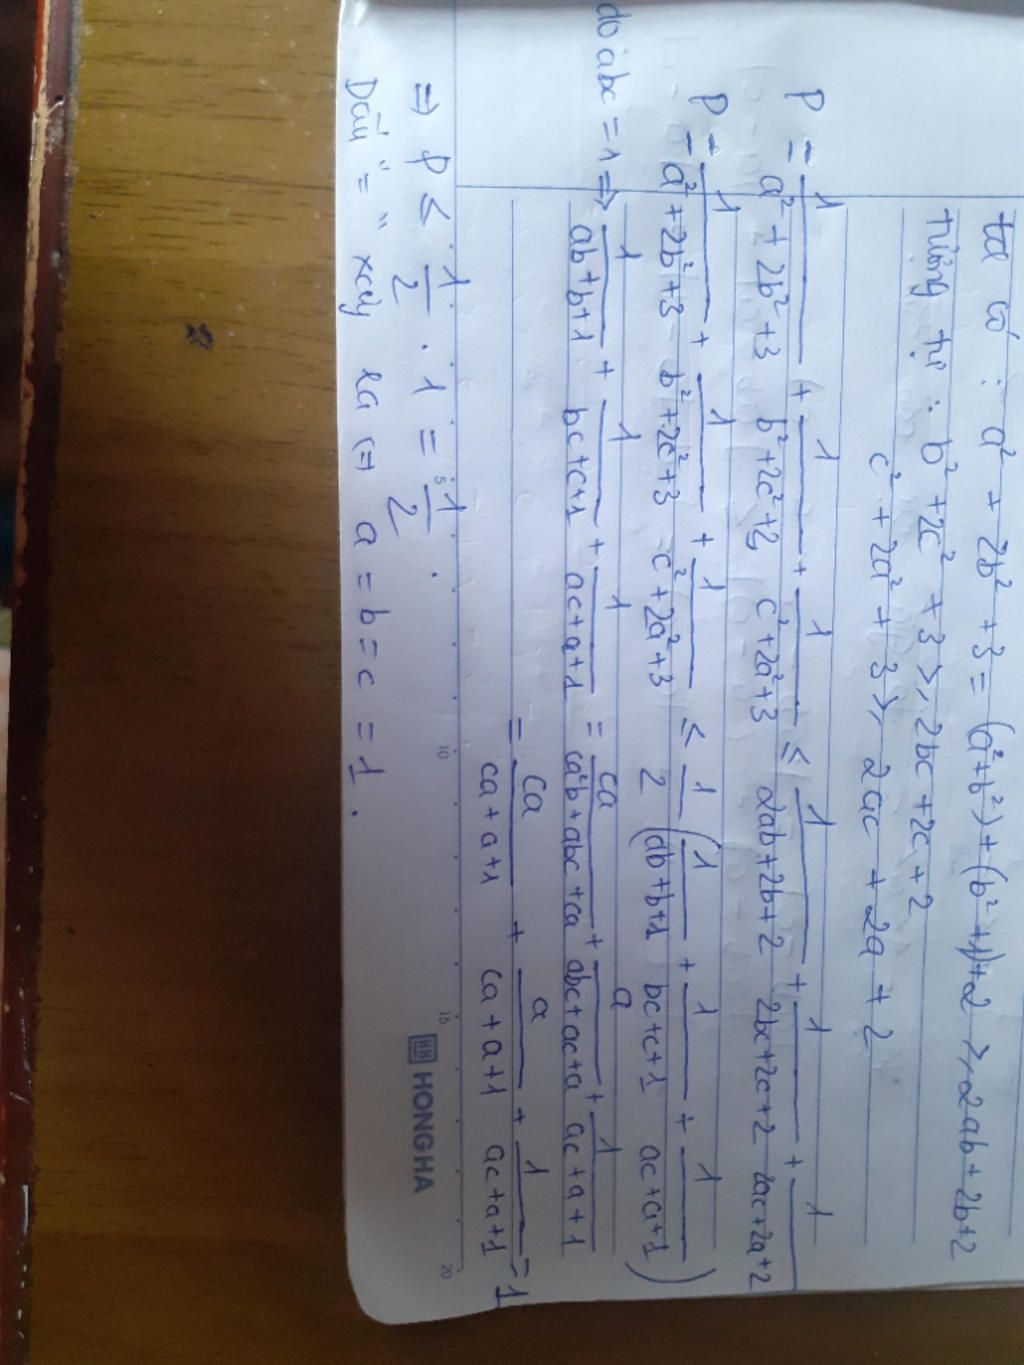 ta có : a² + 2b² + 3 = (a²+b²) + (b²+1)+2 ≥ 2ab + 2b+2
tương tự : b² + 2c² + 3 ≥ 2bc + 2c + 2
c² + 2a² + 3 ≥ 2ac + 2a + 2
P = 1/(a² + 2b² + 3) + 1/(b² + 2c² + 3) + 1/(c² + 2a² + 3) ≤ 1/(2ab+2b+2) + 1/(2bc+2c+2) + 1/(2ac+2a+2)
P = 1/(a² + 2b² + 3) + 1/(b² + 2c² + 3) + 1/(c² + 2a² + 3) ≤ 1/2 (1/(ab+b+1) + 1/(bc+c+1) + 1/(ac+a+1))
do abc = 1 => 1/(ab+b+1) + 1/(bc+c+1) + 1/(ac+a+1) = ca/(ca²b+abc+ca) + a/(abc+ac+a) + 1/(ac+a+1)
= ca/(ca+a+1) + a/(ca+a+1) + 1/(ac+a+1) = 1
=> P ≤ 1/2 . 1 = 1/2 .
Dấu "=" xảy ra <=> a = b = c = 1 .
5 10 15 20
HH HONG HA